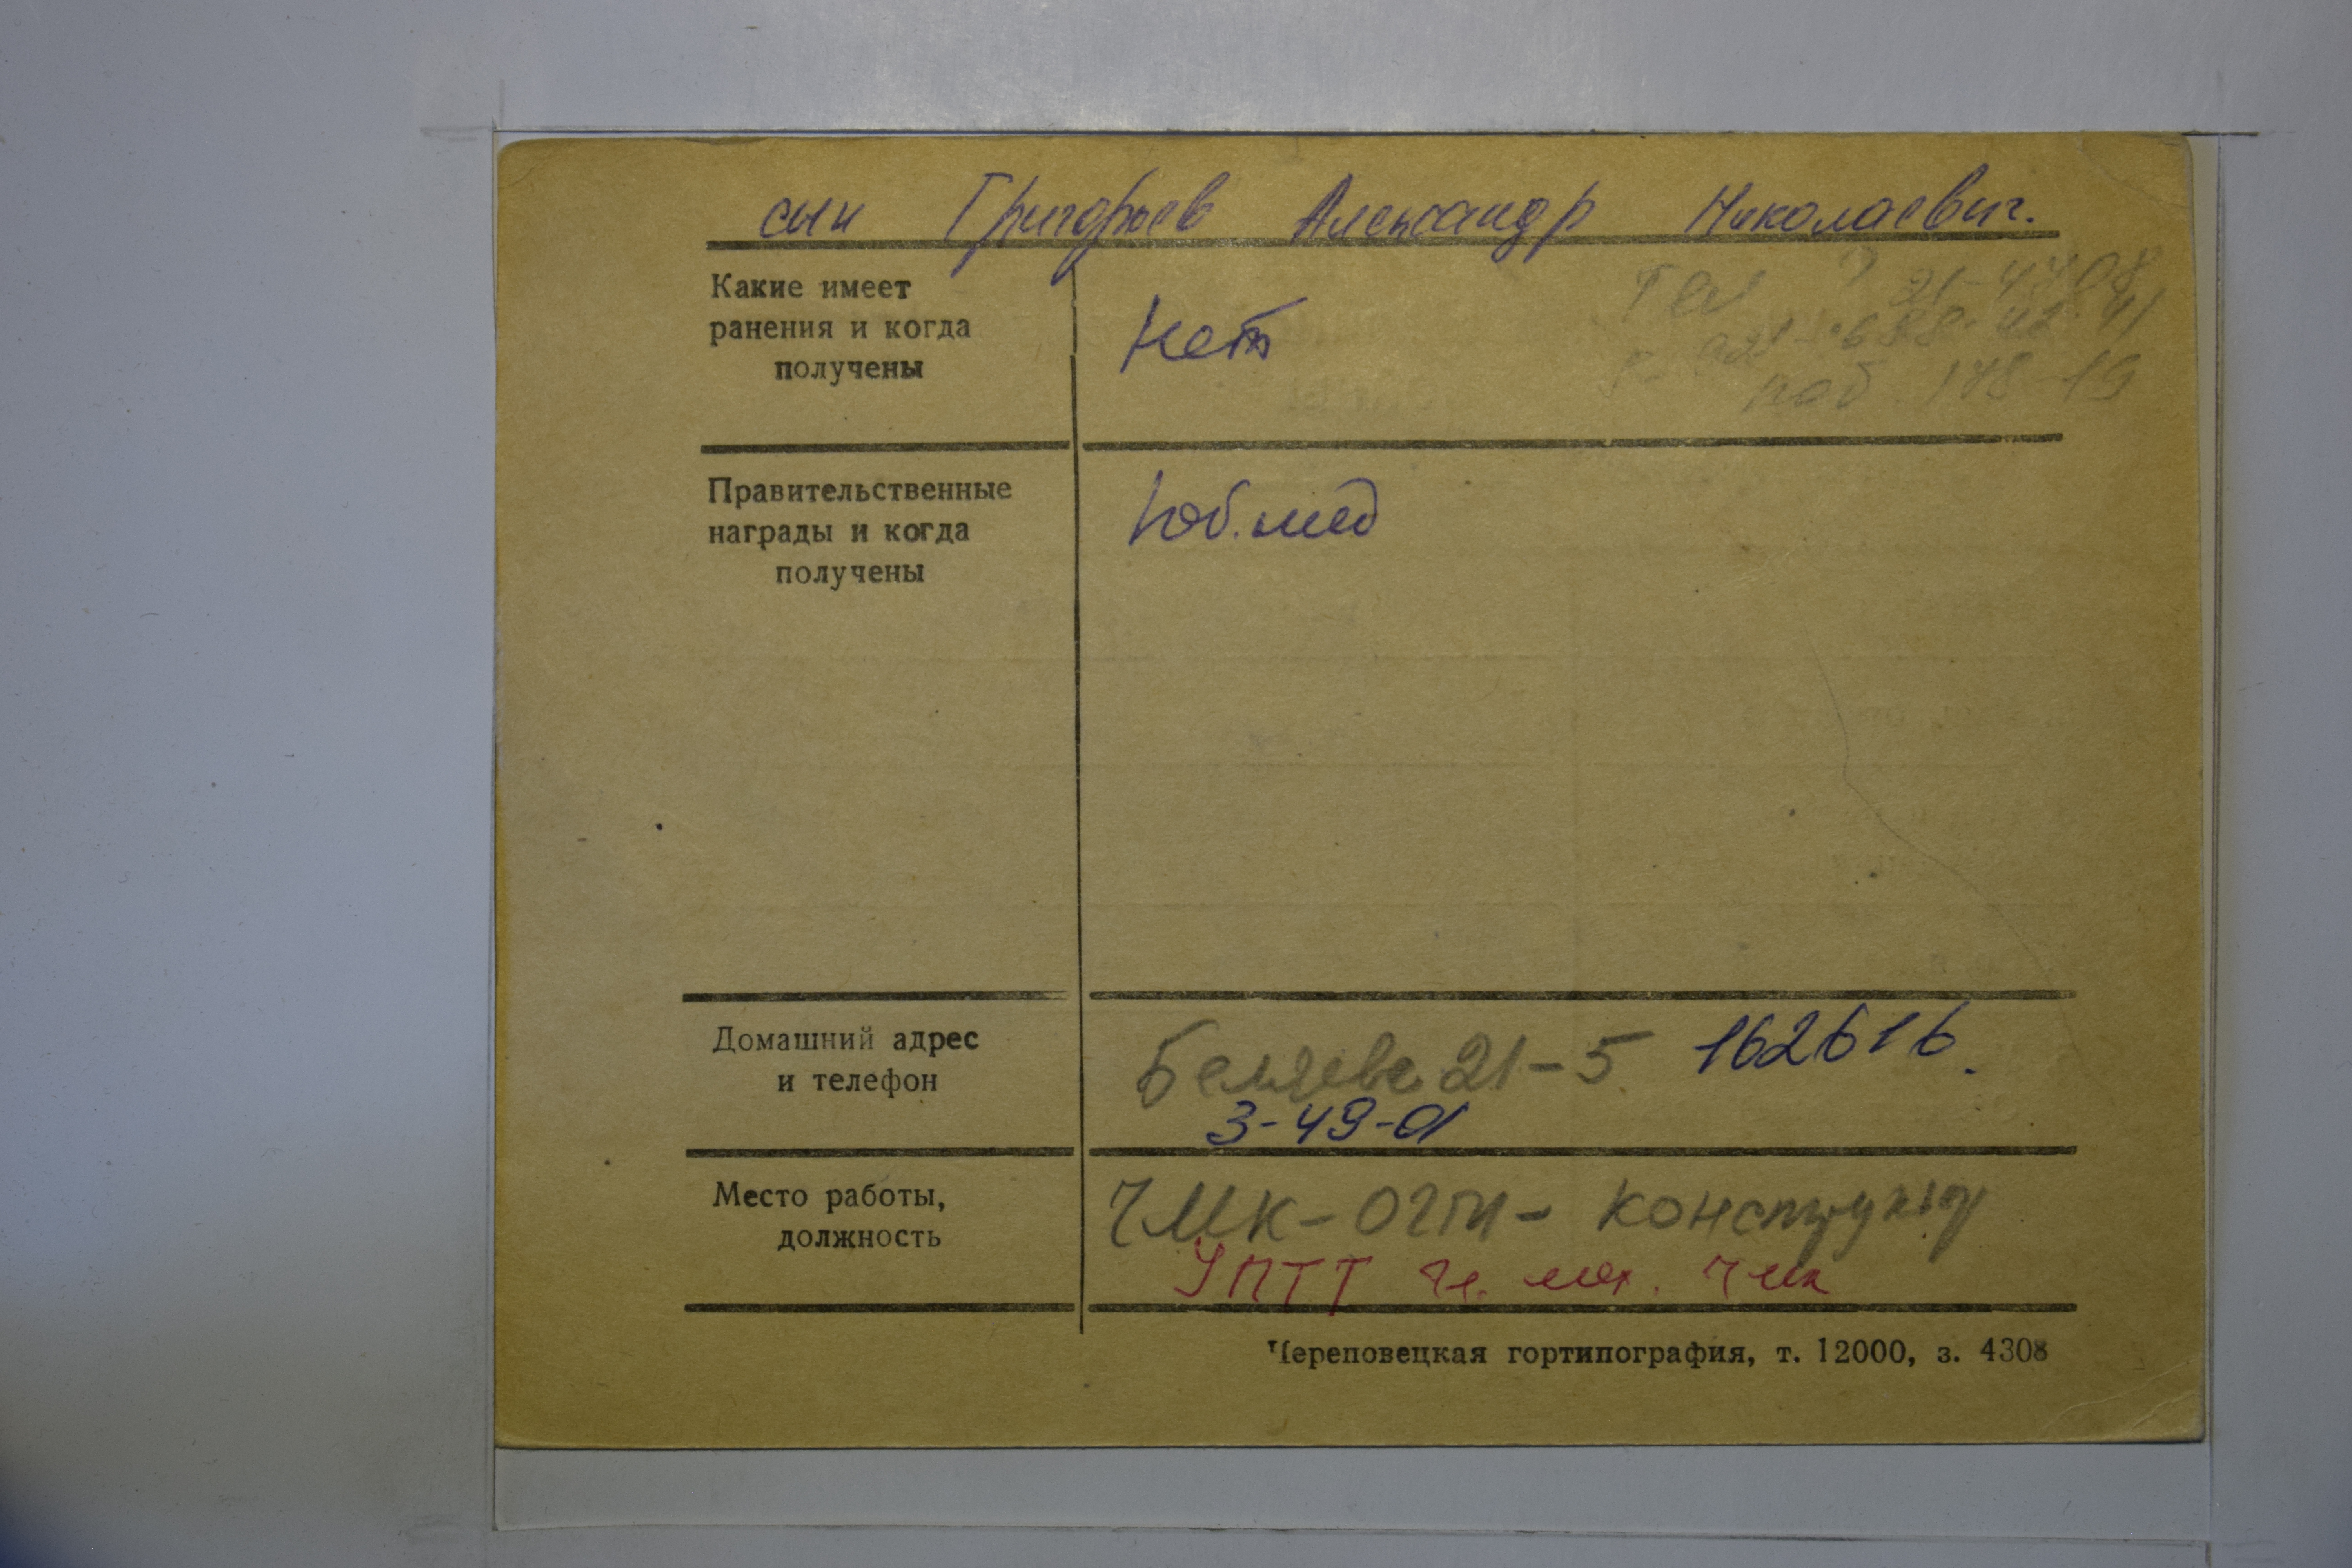 сын Григорьев Александр Николаевич.
Какие имеет
ранения и когда
получены
Нет
Тел
21-47-08
раб 148-19
Правительственные
награды и когда
получены
Юб. мед
Домашний адрес
и телефон
Беляева 21-5. 162616.
3-49-01
Место работы,
должность
ЧМК-ОГМ- Конструктр
УПТТ гл. мех. Чмк
Череповецкая гортипография, т. 12000, з. 4308